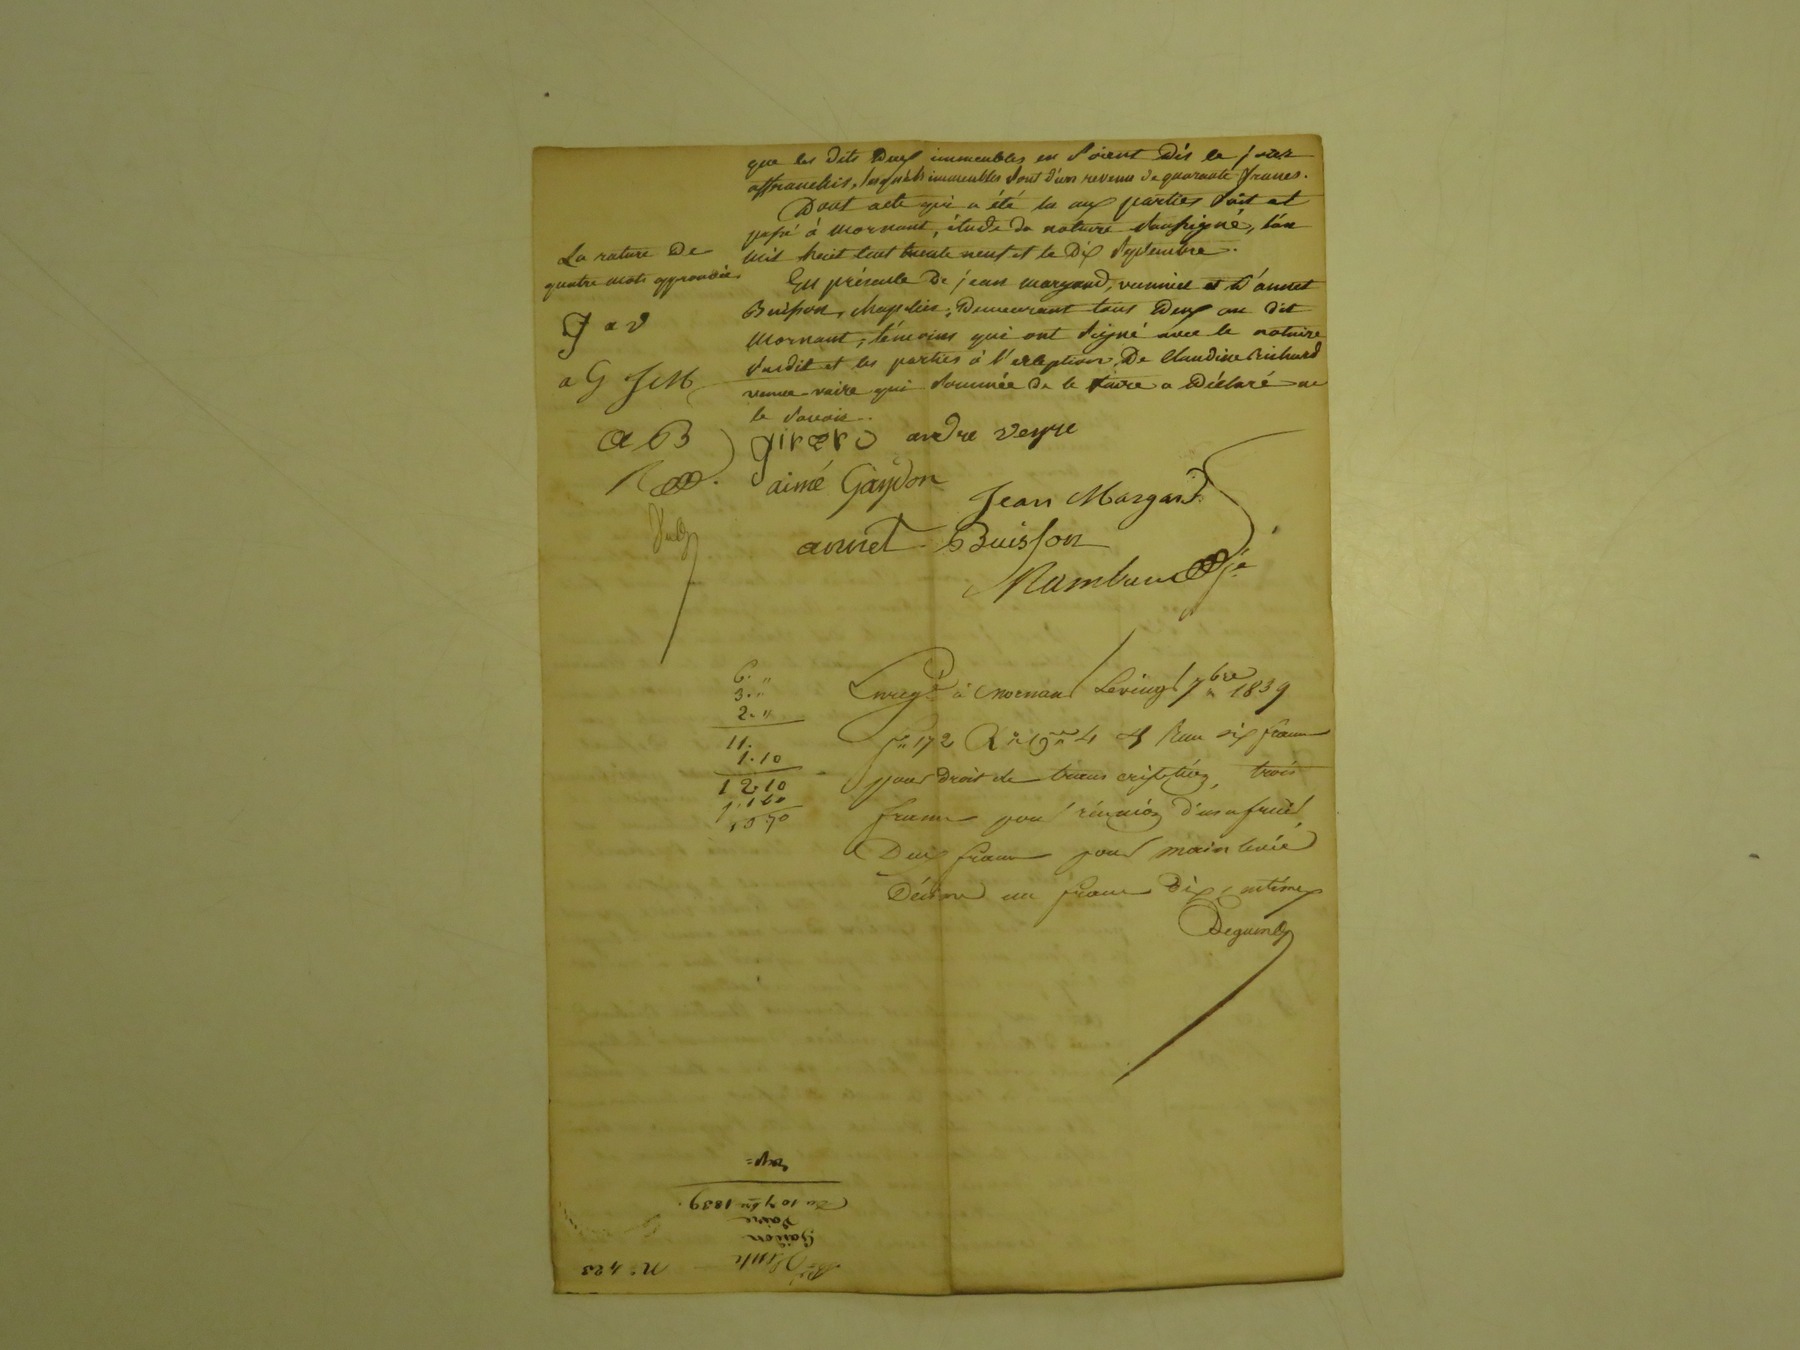 que les dits deux immeubles en soient dès ce jour
affranchis, lesquels immeubles sont d'un revenu de quarante francs.
Dont acte qui a été lu aux parties fait et
passé à Mornant, étude du notaire soussigné, l'an
mil huit cent trente neuf et le dix septembre.
En présence de jean margand, vannier et d'annet
Buisson, chapelier, demeurant tous deux au dit
Mornant, témoins qui ont signé avec le notaire
susdit et les parties à l'exception de Claudine Richard
veuve qui sommée de le faire a déclaré ne
le savoir.
La rature de
quatre mots approuvée
J a v
a G J M
a B
girard andre veyre
aimé Gaydon
Jean Margand
annet Buisson
6. "
3. "
2. "
11.
1.10
12.10
Enregé à Mornant le vingt 7bre 1839
fo 172 Ro 4 et Reçu six francs
pour droit de transcription, trois
francs pour réunion d'usufruit,
Deux francs pour main levée
Décime un franc dix centimes
exp=
Du 10 7bre 1839.
Gaidon
Vente
No 423